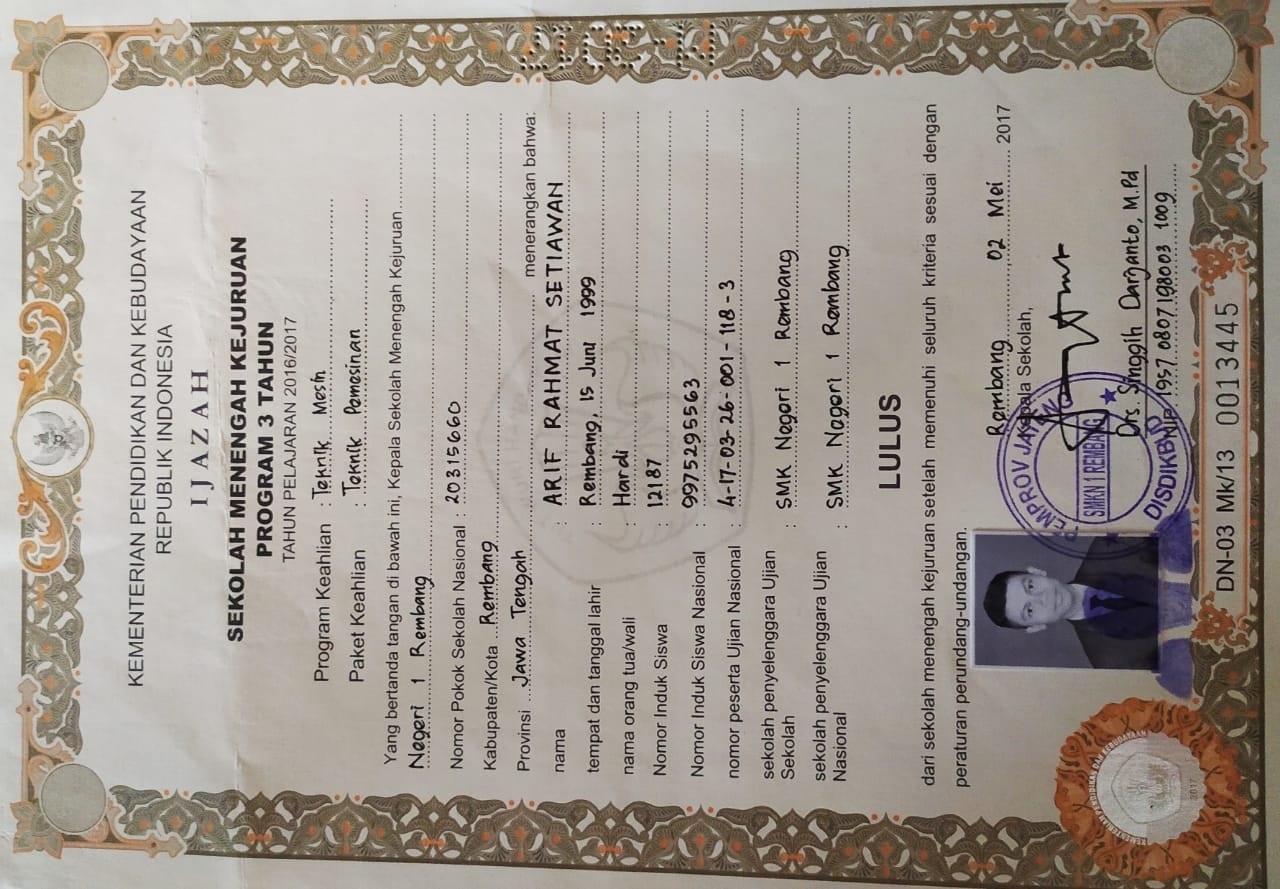 KEMENTERIAN PENDIDIKAN DAN KEBUDAYAAN
REPUBLIK INDONESIA
IJAZAH
SEKOLAH MENENGAH KEJURUAN
PROGRAM 3 TAHUN
TAHUN PELAJARAN 2016/2017
Program Keahlian : Teknik Mesin
Paket Keahlian : Teknik Pemesinan
Yang bertanda tangan di bawah ini, Kepala Sekolah Menengah Kejuruan
Negeri 1 Rembang
Nomor Pokok Sekolah Nasional : 20315660
Kabupaten/Kota Rembang
Provinsi Jawa Tengah menerangkan bahwa:
nama : ARIF RAHMAT SETIAWAN
tempat dan tanggal lahir : Rembang, 15 Juni 1999
nama orang tua/wali : Hardi
Nomor Induk Siswa : 12187
Nomor Induk Siswa Nasional : 9975295563
nomor peserta Ujian Nasional : 4-17-03-26-001-118-3
sekolah penyelenggara Ujian : SMK Negeri 1 Rembang
Sekolah
sekolah penyelenggara Ujian : SMK Negeri 1 Rembang
Nasional
LULUS
dari sekolah menengah kejuruan setelah memenuhi seluruh kriteria sesuai dengan
peraturan perundang-undangan.
Rembang, 02 Mei 2017
Kepala Sekolah,
PEMPROV JAWA
SMKN 1 REMBANG
DISDIKBUD
Drs. Singgih Darjanto, M.Pd
NIP 1957 0807 198003 1009
KEMENTERIAN PENDIDIKAN DAN KEBUDAYAAN
2017
DN-03 Mk/13 0013445